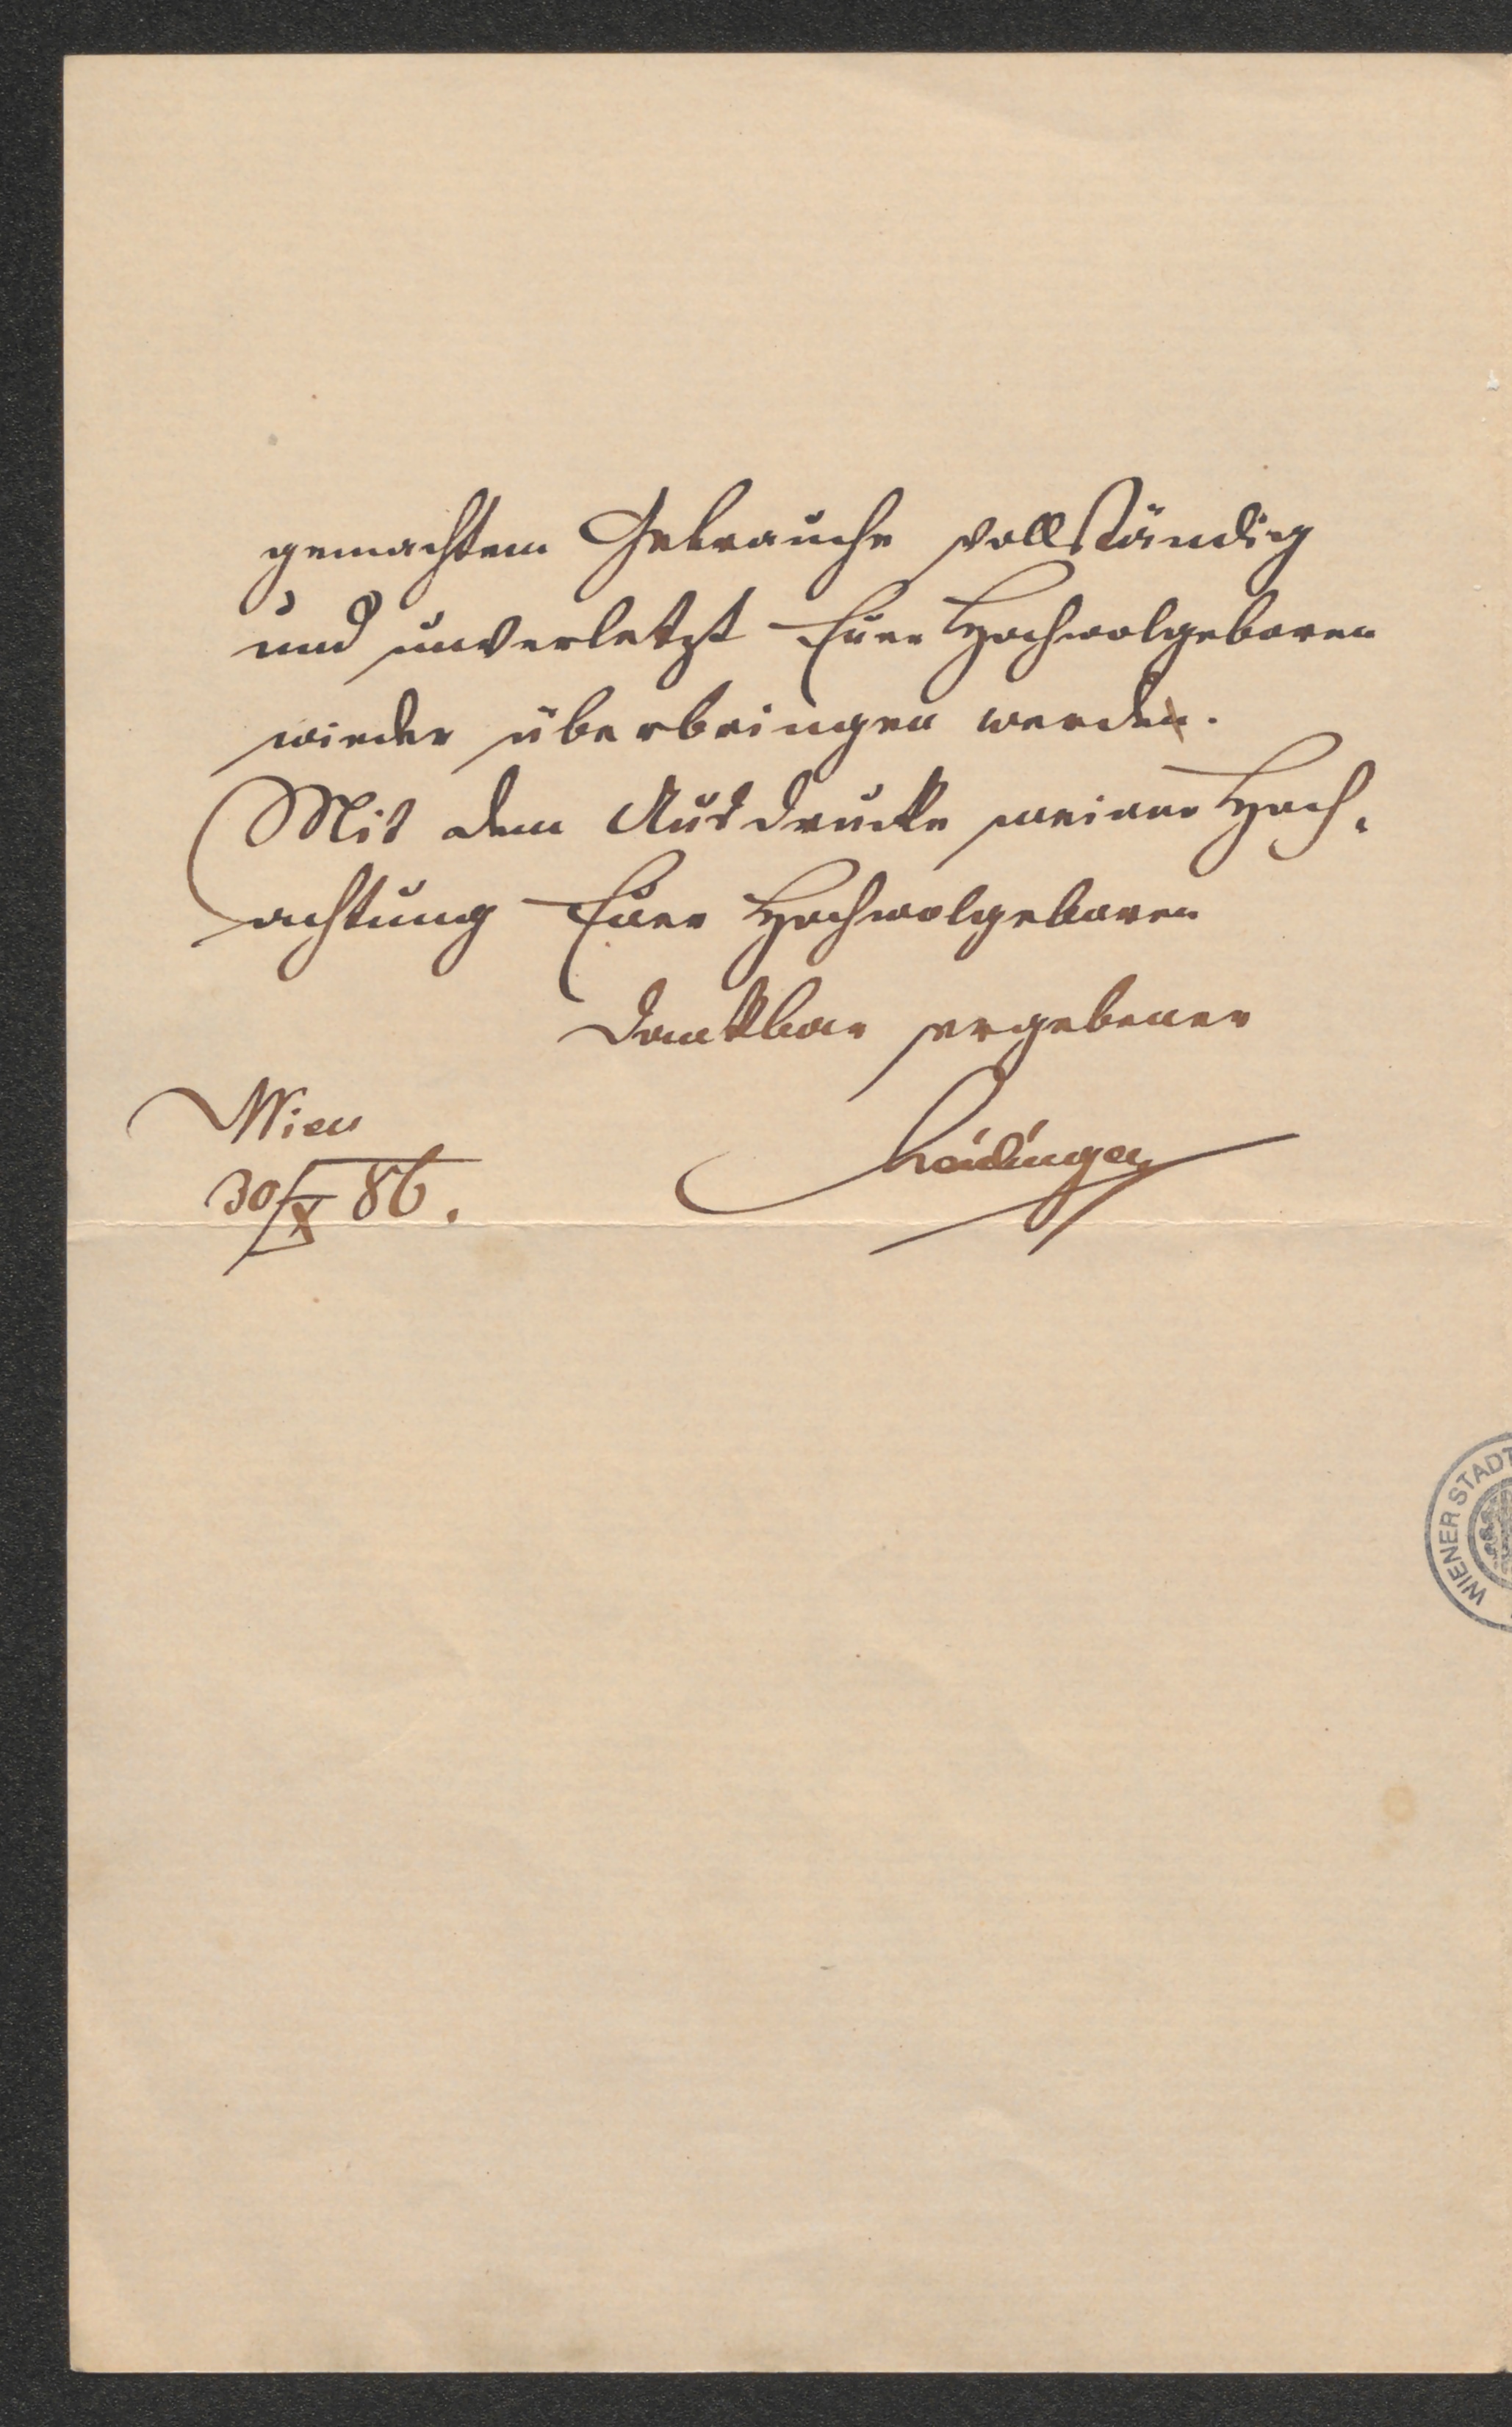 gemachtem Gebrauche vollständig
und unverletzt Euer Hochwolgeboren
wieder überbringen werde.
Mit dem Ausdrucke meiner Hoch-
achtung Euer Hochwolgeboren
dankbar ergebener
Wien
30/X 86.
WIENER STADT